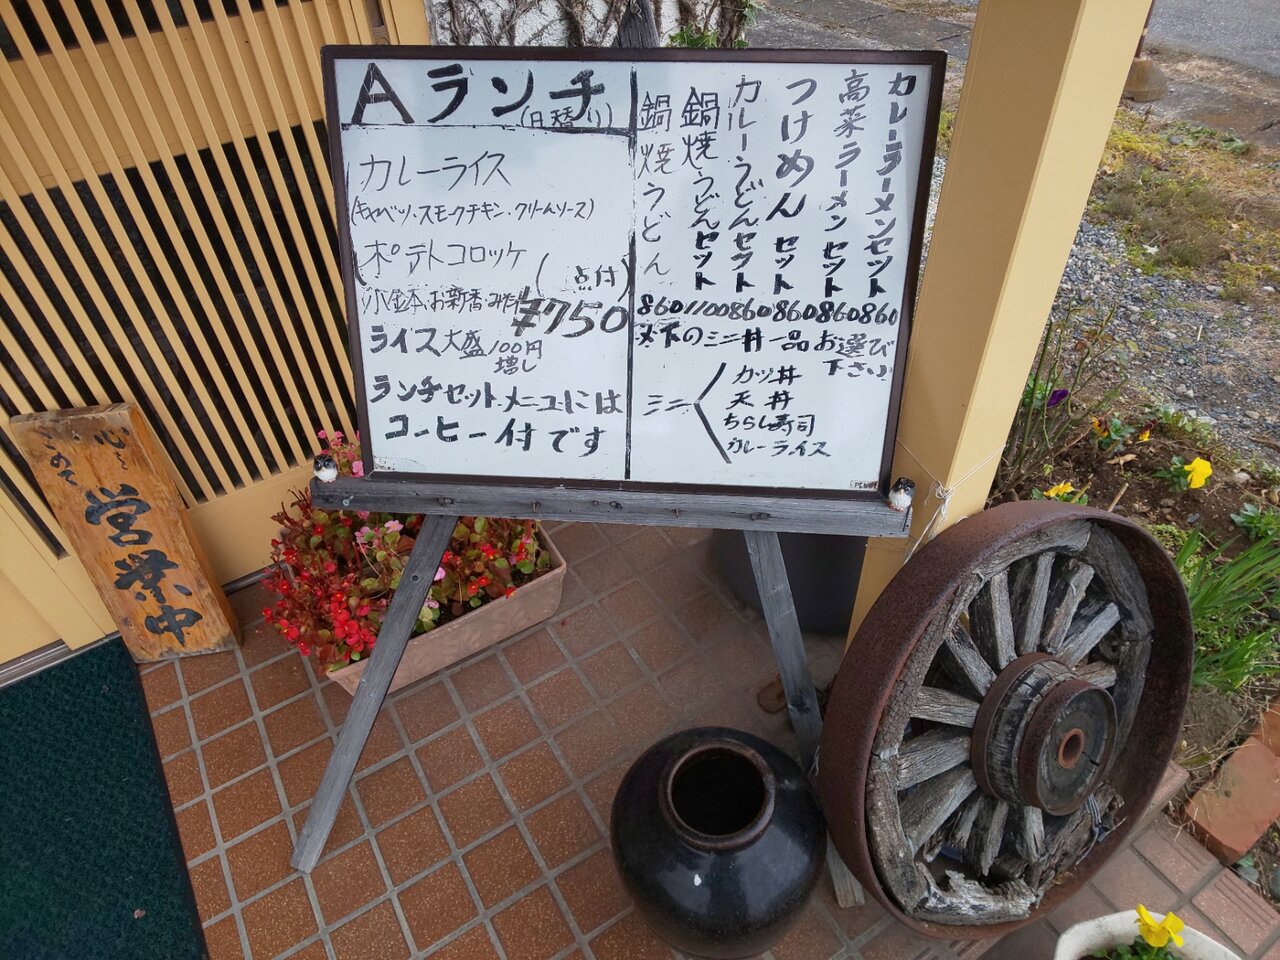 Aランチ
(日替り)
カレーライス
(キャベツ・スモークチキン・クリームソース)
ポテトコロッケ
(点付)
小鉢・みそ汁・お新香
¥750
ライス大盛100円
増し
ランチセットメニューには
コーヒー付です
カレーラーメンセット 860
高菜ラーメンセット 860
つけめんセット 860
カレーうどんセット 860
鍋焼うどんセット 1100
鍋焼うどん 860
以下のミニ丼一品お選び
下さい
ミニ
カツ丼
天丼
ちらし寿司
カレーライス
PLUS
心をこめて
営業中